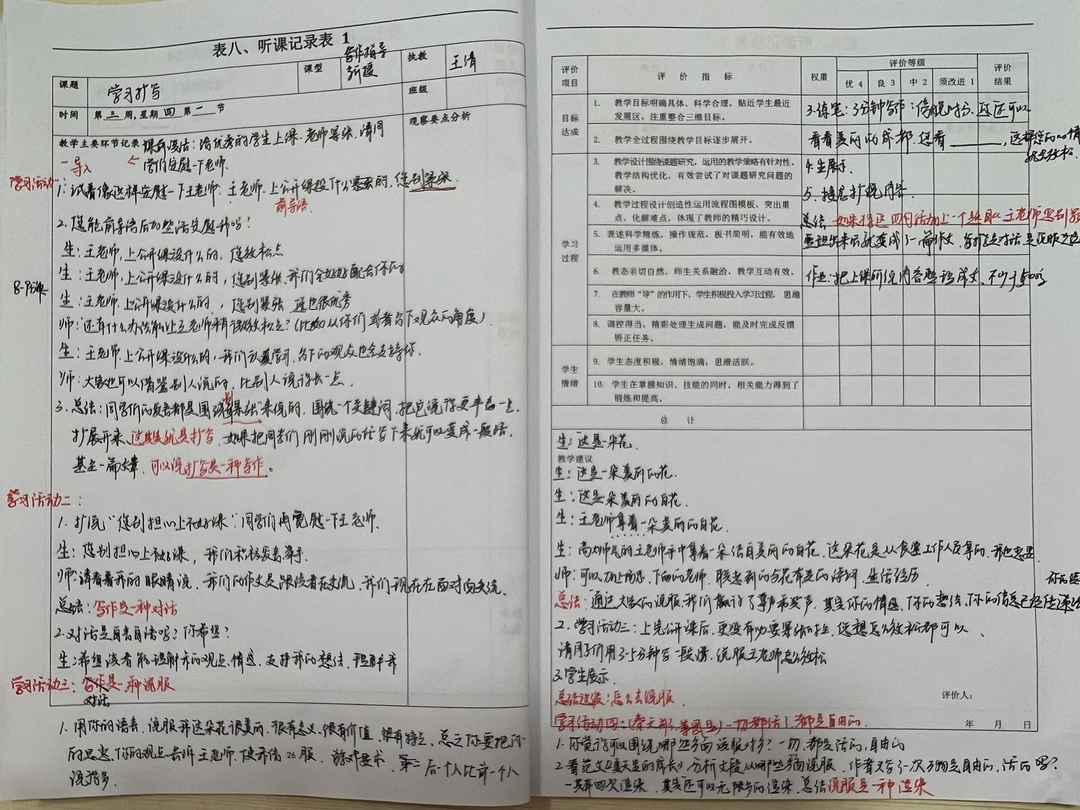 表八、听课记录表 1
课题 学习扩写 课型 写作指导 新授 执教 王清
时间 第三周,星期四 第二节 班级
教学主要环节记录 课前谈话:请优秀的学生上课,老师紧张,请同 观察要点分析
一导入 学们安慰一下老师。
学习活动一
1. 试着像这样安慰一下王老师,王老师,上公开课没什么要紧的,您别紧张
前导语
2. 您能前导语后加些话安慰我吗?
生:王老师,上公开课没什么的,您放松点
生:王老师,上公开课没什么的,您别紧张,我们会好好配合你的
8-9个课
生:王老师,上公开课没什么的,您别紧张 逗也很优秀
师:还有什么办法能让王老师放松点?(比如从你们或者台下观众的角度)
生:王老师,上公开课没什么的,我们认真学习,台下的观众也会支持你.
师:大家也可以借鉴别人说的,比别人说话长一点.
3. 总结:同学们的发言都是围绕"紧张"来说的,围绕一个关键词,把它说得更丰富一点,
扩展开来,这些就是扩写,如果把同学们刚刚说的话写下来就可以变成一段话,
甚至一篇文章,可以说扩写是一种写作。
学习活动二:
1. 扩说"您别担心上不好课"同学们再宽慰一下王老师.
生:您别担心上不好课,我们积极发言举手.
师:请看着我的眼睛说,我们的作文是跟读者在交流,我们现在在面对面交流.
总结:写作是一种对话
2. 对话是自言自语吗?你希望?
生:希望读者能理解我的观点、情感,支持我的想法、理解我
学习活动三:写作是一种说服
对话
1. 用你的语言,说服我这朵花很美丽,很有意义,很有价值,很有特点,总之你要把你
的思想,你的观点告诉王老师,使我信服. 游戏要求,第二后一个人比前一个人
说得多.
评价项目 评价指标 权重 评价等级 优4 良3 中2 须改进1 评价结果
目标达成
1. 教学目标明确具体、科学合理,贴近学生最近发展区,注重整合三维目标。
2. 教学全过程围绕教学目标逐步展开。
学习过程
3. 教学设计围绕课题研究,运用的教学策略有针对性,教学结构优化,有效尝试了对课题研究问题的解决。
4. 教学过程设计创造性运用流程图模板,突出重点,化解难点,体现了教师的精巧设计。
5. 表述科学精炼,操作规范,板书简明,能有效地运用多媒体。
6. 教态亲切自然,师生关系融洽,教学互动有效。
7. 在教师"导"的作用下,学生积极投入学习过程,思维容量大。
8. 调控得当,精彩处理生成问题,能及时完成反馈矫正任务。
学生情绪
9. 学生态度积极,情绪饱满,思维活跃。
10. 学生在掌握知识、技能的同时,相关能力得到了锻炼和提高。
总计
3. 练笔:3分钟写作:
看着美丽的成都,您看______,
4. 生展示.
5.
总结:
作业:把上课所说内容整理成文,不少于500字
生:这是一朵花.
教学建议
生:这是一朵美丽的花.
生:这是一朵美丽的白花.
生:王老师拿着一朵美丽的白花.
生:高大帅气的王老师手中拿着一朵洁白美丽的白花,这朵花是从食堂工作人员拿的,
师:可以加上想象,下面的老师,联想到的含花有关的诗词,生活经历
总结:通过大家的说服,我们赢得了掌声和笑声,其实你的情感,你的想法,你的信息已经传递
2. 学习活动三:上完公开课后,更没有必要紧张的了,您想怎么放松都可以、
请同学们用3-5分钟写一段话,说服王老师怎么放松
3. 学生展示.
总结过渡:怎么去说服
评价人:
年 月 日
学习活动四:一切都活了 都是自由的
1. 你觉得可以围绕哪些方面说服对方?一切都是活的,自由的
2. 看范文《夏天里的成长》分析文段从哪些方面说服,作者又写了一次万物是自由的,活的吗?
一共举四次渲染,其实还可以无限多的渲染,总结说服是一种渲染